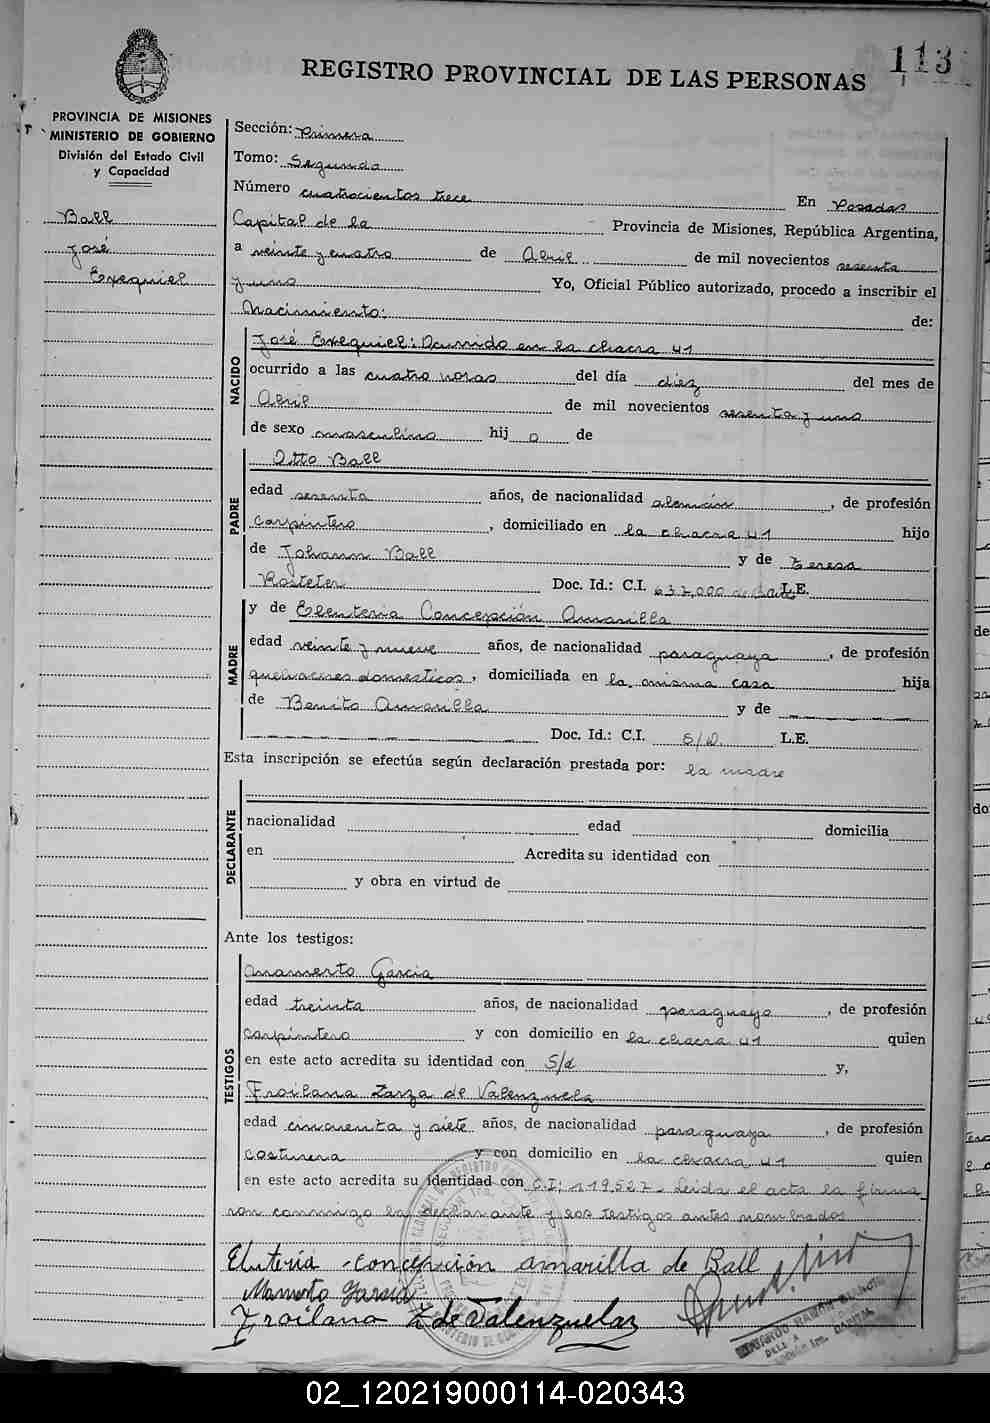 113
REGISTRO PROVINCIAL DE LAS PERSONAS
PROVINCIA DE MISIONES
MINISTERIO DE GOBIERNO
División del Estado Civil
y Capacidad
Ball
José
Exequiel
Sección: Primera
Tomo: Segundo
Número cuatrocientos trece En Posadas
Capital de la Provincia de Misiones, República Argentina,
a veinte y cuatro de Abril de mil novecientos sesenta
y uno Yo, Oficial Público autorizado, procedo a inscribir el
Nacimiento: de:
NACIDO
José Exequiel: Ocurrido en la chacra 41
ocurrido a las cuatro horas del día diez del mes de
Abril de mil novecientos sesenta y uno
de sexo masculino hij o de
PADRE
Otto Ball
edad sesenta años, de nacionalidad alemán, de profesión
carpintero, domiciliado en la chacra 41 hijo
de Johann Ball y de Teresa
Rosteter Doc. Id.: C.I. 637,000 de L.E.
MADRE
y de Eleuteria Concepción Amarilla
edad veinte y nueve años, de nacionalidad paraguaya, de profesión
quehaceres domesticos, domiciliada en la misma casa hija
de Benito Amarilla y de
Doc. Id.: C.I. S/D. L.E.
Esta inscripción se efectúa según declaración prestada por: la madre
DECLARANTE
nacionalidad edad domicilia
en Acredita su identidad con
y obra en virtud de
Ante los testigos:
TESTIGOS
Mamerto Garcia
edad treinta años, de nacionalidad paraguayo, de profesión
carpintero y con domicilio en la chacra 41 quien
en este acto acredita su identidad con S/d y,
Froilana Zarza de Valenzuela
edad cincuenta y siete años, de nacionalidad paraguaya, de profesión
costurera y con domicilio en la chacra 41 quien
en este acto acredita su identidad con C.I: 119,527. Leida el acta la firma
ron conmigo la declarante y los testigos antes nombrados
Eluteria Concepción amarilla de Ball
Mamerto Garcia
Froilana Z de Valenzuela
02_120219000114-020343